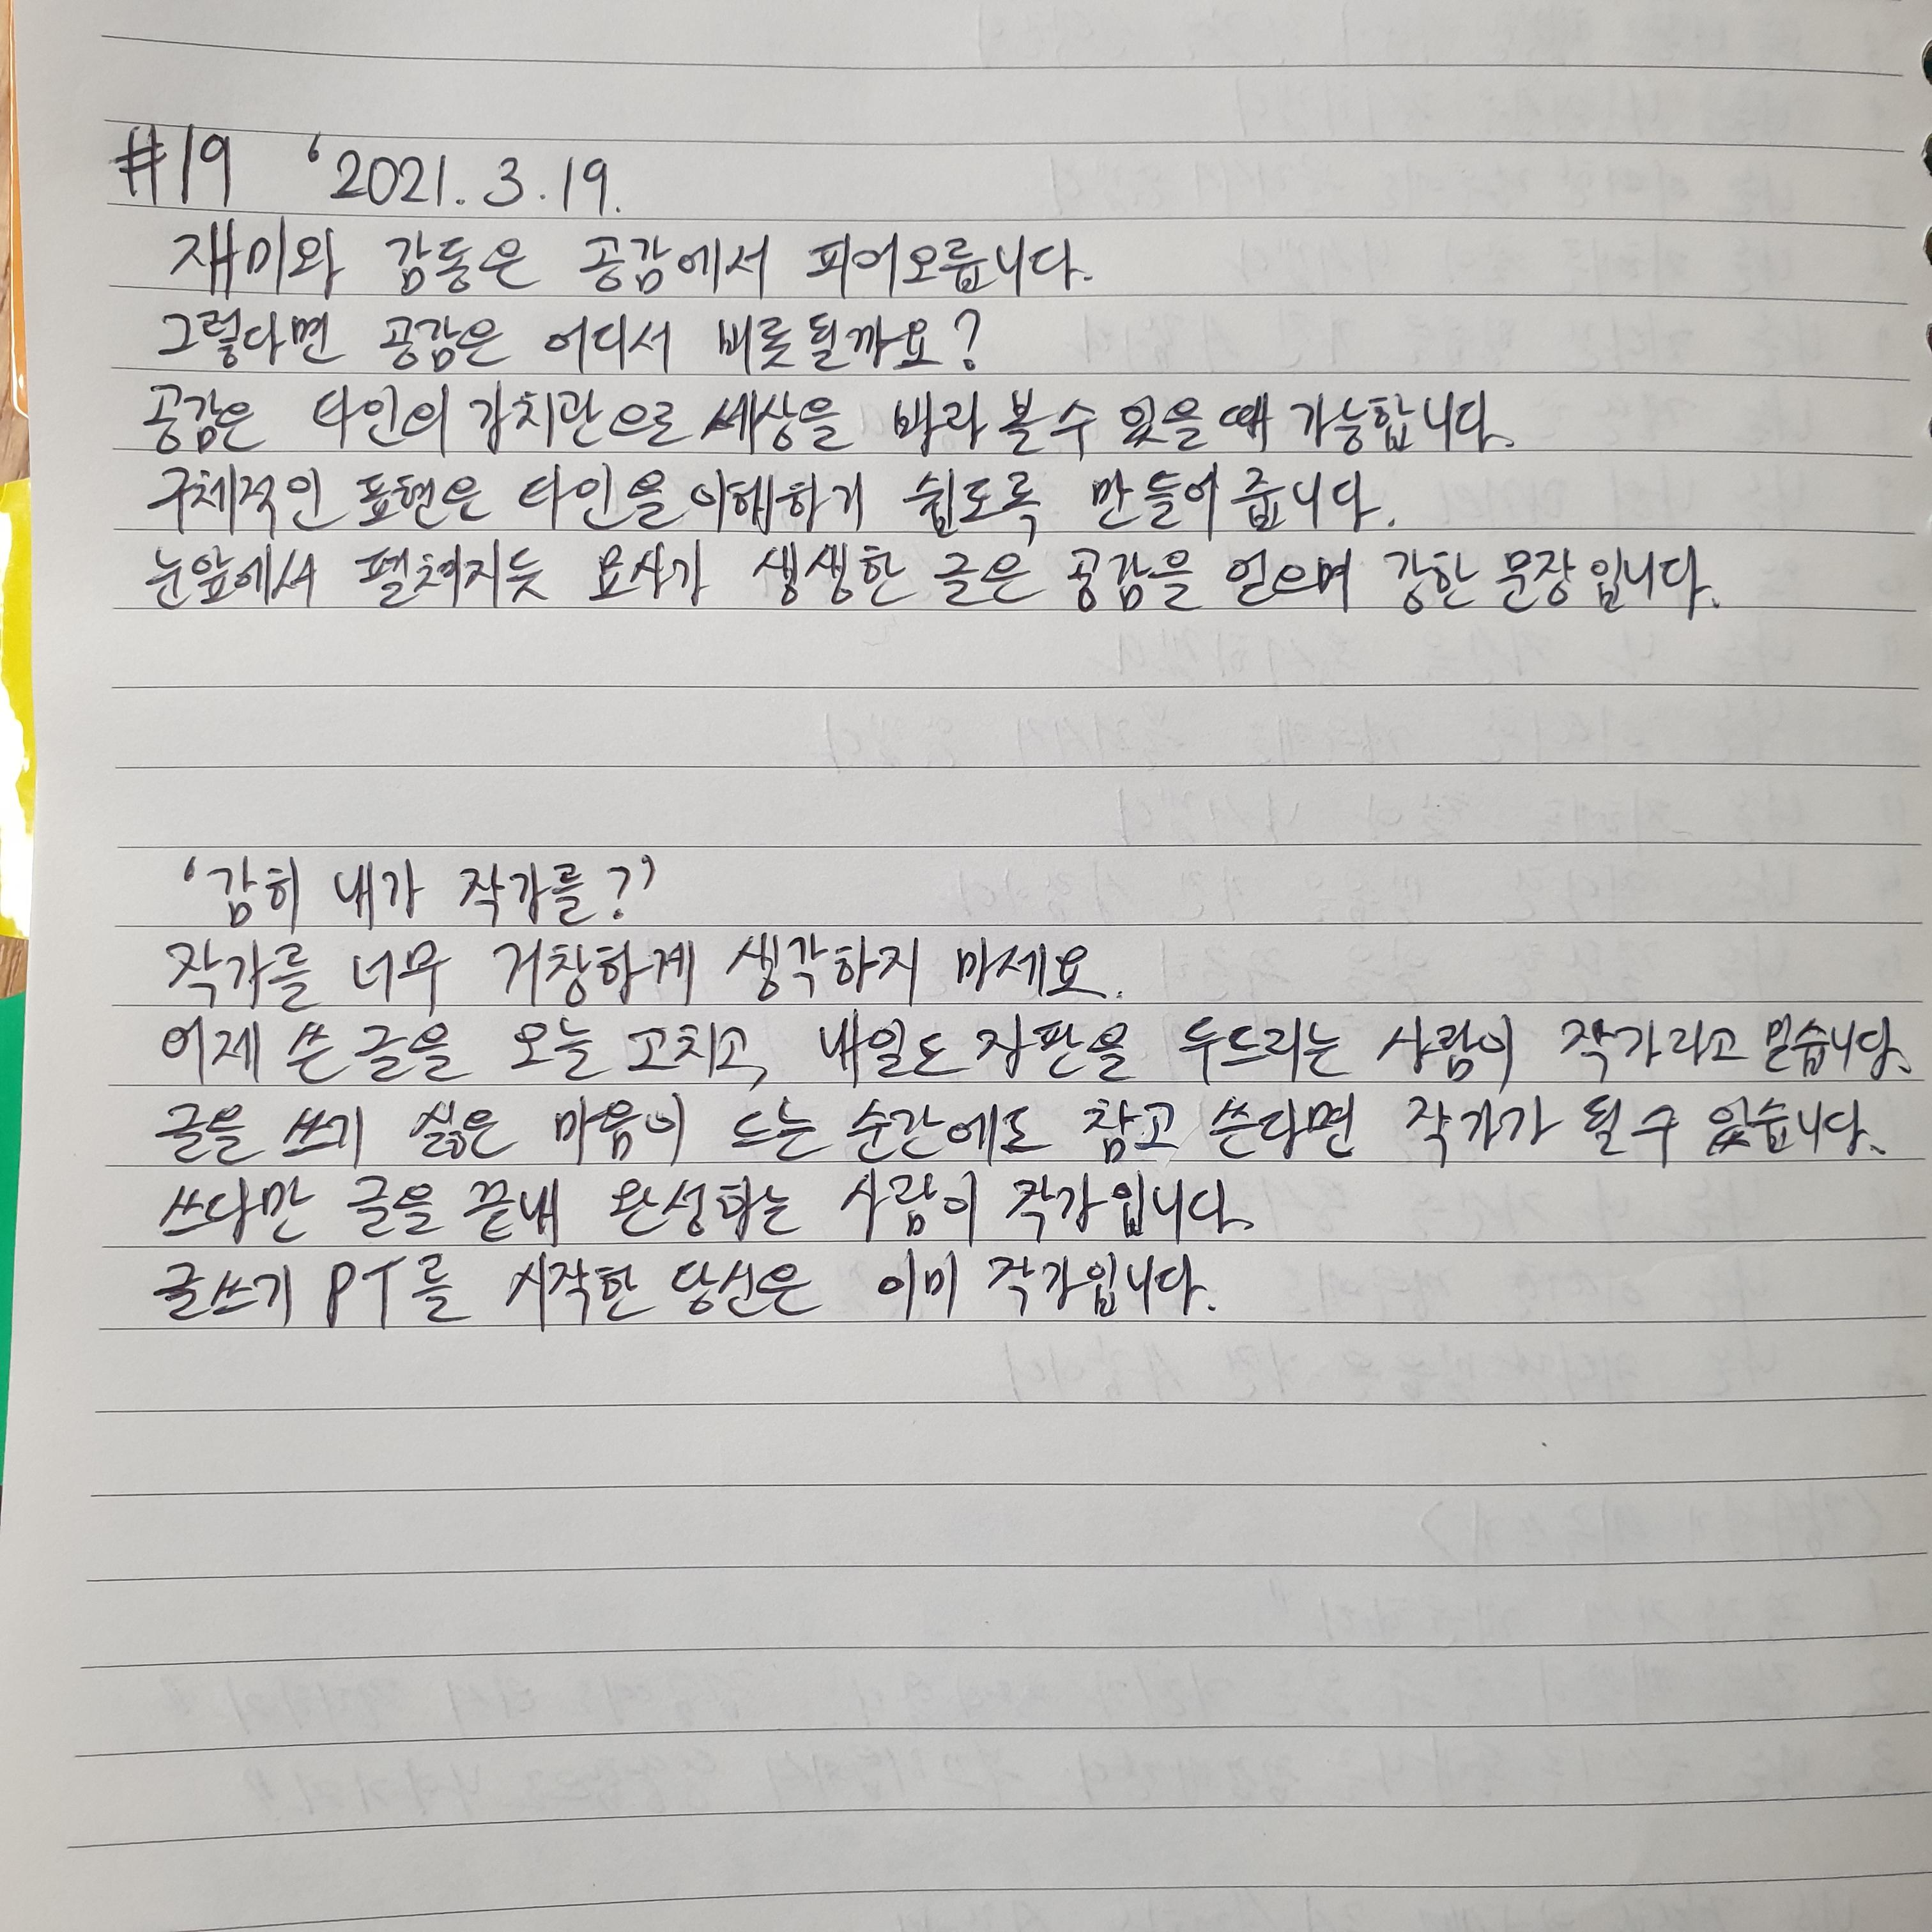 #19 '2021. 3. 19.
재미와 감동은 공감에서 피어오릅니다.
그렇다면 공감은 어디서 비롯될까요?
공감은 타인의 가치관으로 세상을 바라 볼 수 있을 때 가능합니다.
구체적인 표현은 타인을 이해하기 쉽도록 만들어 줍니다.
눈앞에서 펼쳐지듯 묘사가 생생한 글은 공감을 얻으며 강한 문장입니다.
'감히 내가 작가를?'
작가를 너무 거창하게 생각하지 마세요.
어제 쓴 글을 오늘 고치고, 내일도 자판을 두드리는 사람이 작가라고 믿습니다.
글을 쓰기 싫은 마음이 드는 순간에도 참고 쓴다면 작가가 될 수 있습니다.
쓰다만 글을 끝내 완성하는 사람이 작가입니다.
글쓰기 PT를 시작한 당신은 이미 작가입니다.